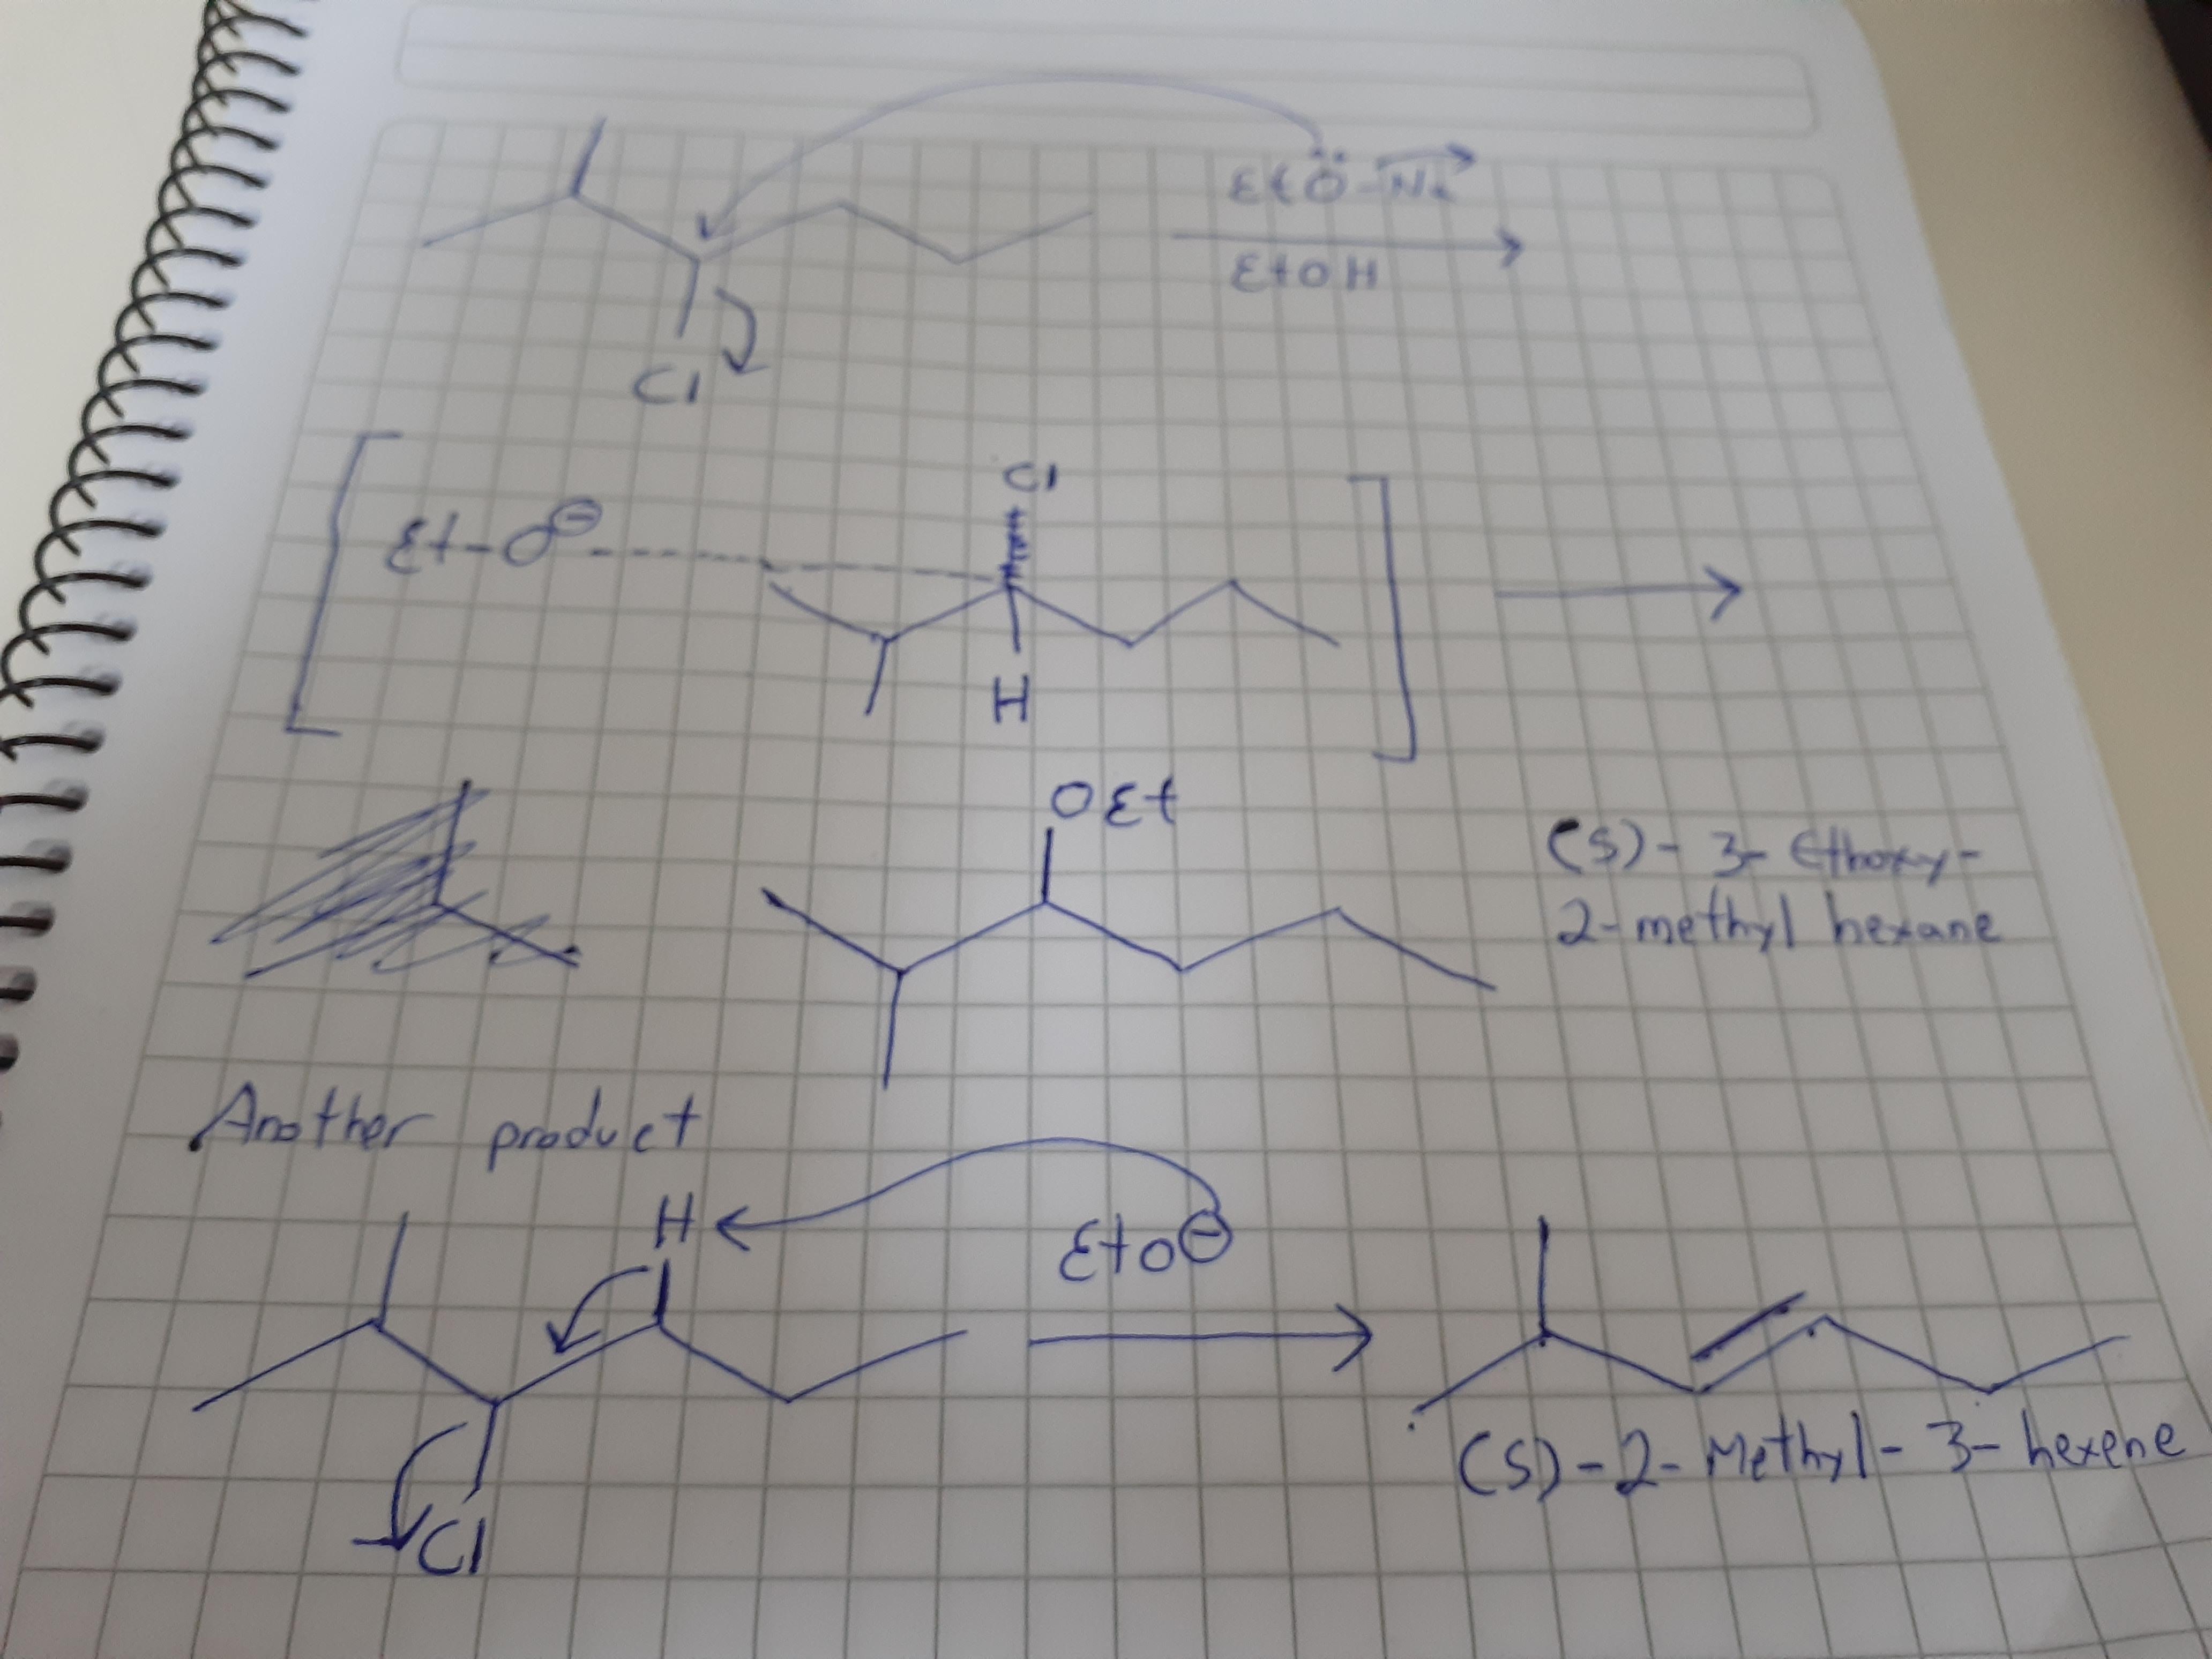 EtÖ-Na
EtOH
Cl
Cl
Et-O⊖
H
OEt
(S)-3-Ethoxy-
2-methyl hexane
Another product
H
EtO⊖
Cl
(S)-2-Methyl-3-hexene